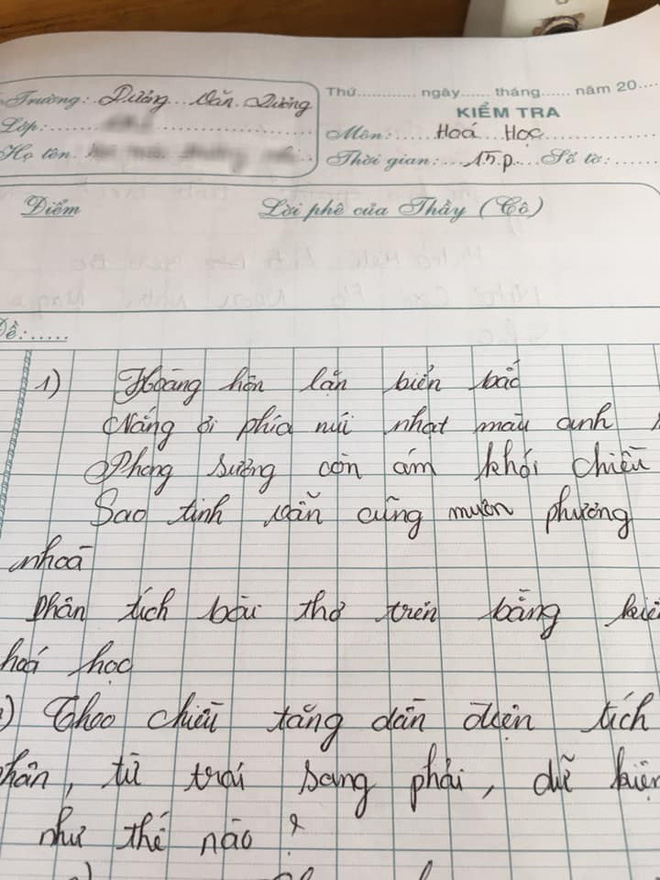 Trường: Dương Văn Dương
Lớp:
Họ tên:
Thứ........... ngày...... tháng...... năm 20....
KIỂM TRA
Môn: Hoá Học
Thời gian: 15p. Số tờ:......
Điểm
Lời phê của Thầy (Cô)
Đề:.....
1) Hoàng hôn lặn biển bắc
Nắng ơi phía núi nhạt màu anh
Phong sương còn ám khói chiều
Sao tinh vẫn cũng muôn phương
nhoà
Phân tích bài thơ trên bằng
hoá học
) Theo chiều tăng dần điện tích
, từ trái sang phải, dữ kiện
như thế nào?